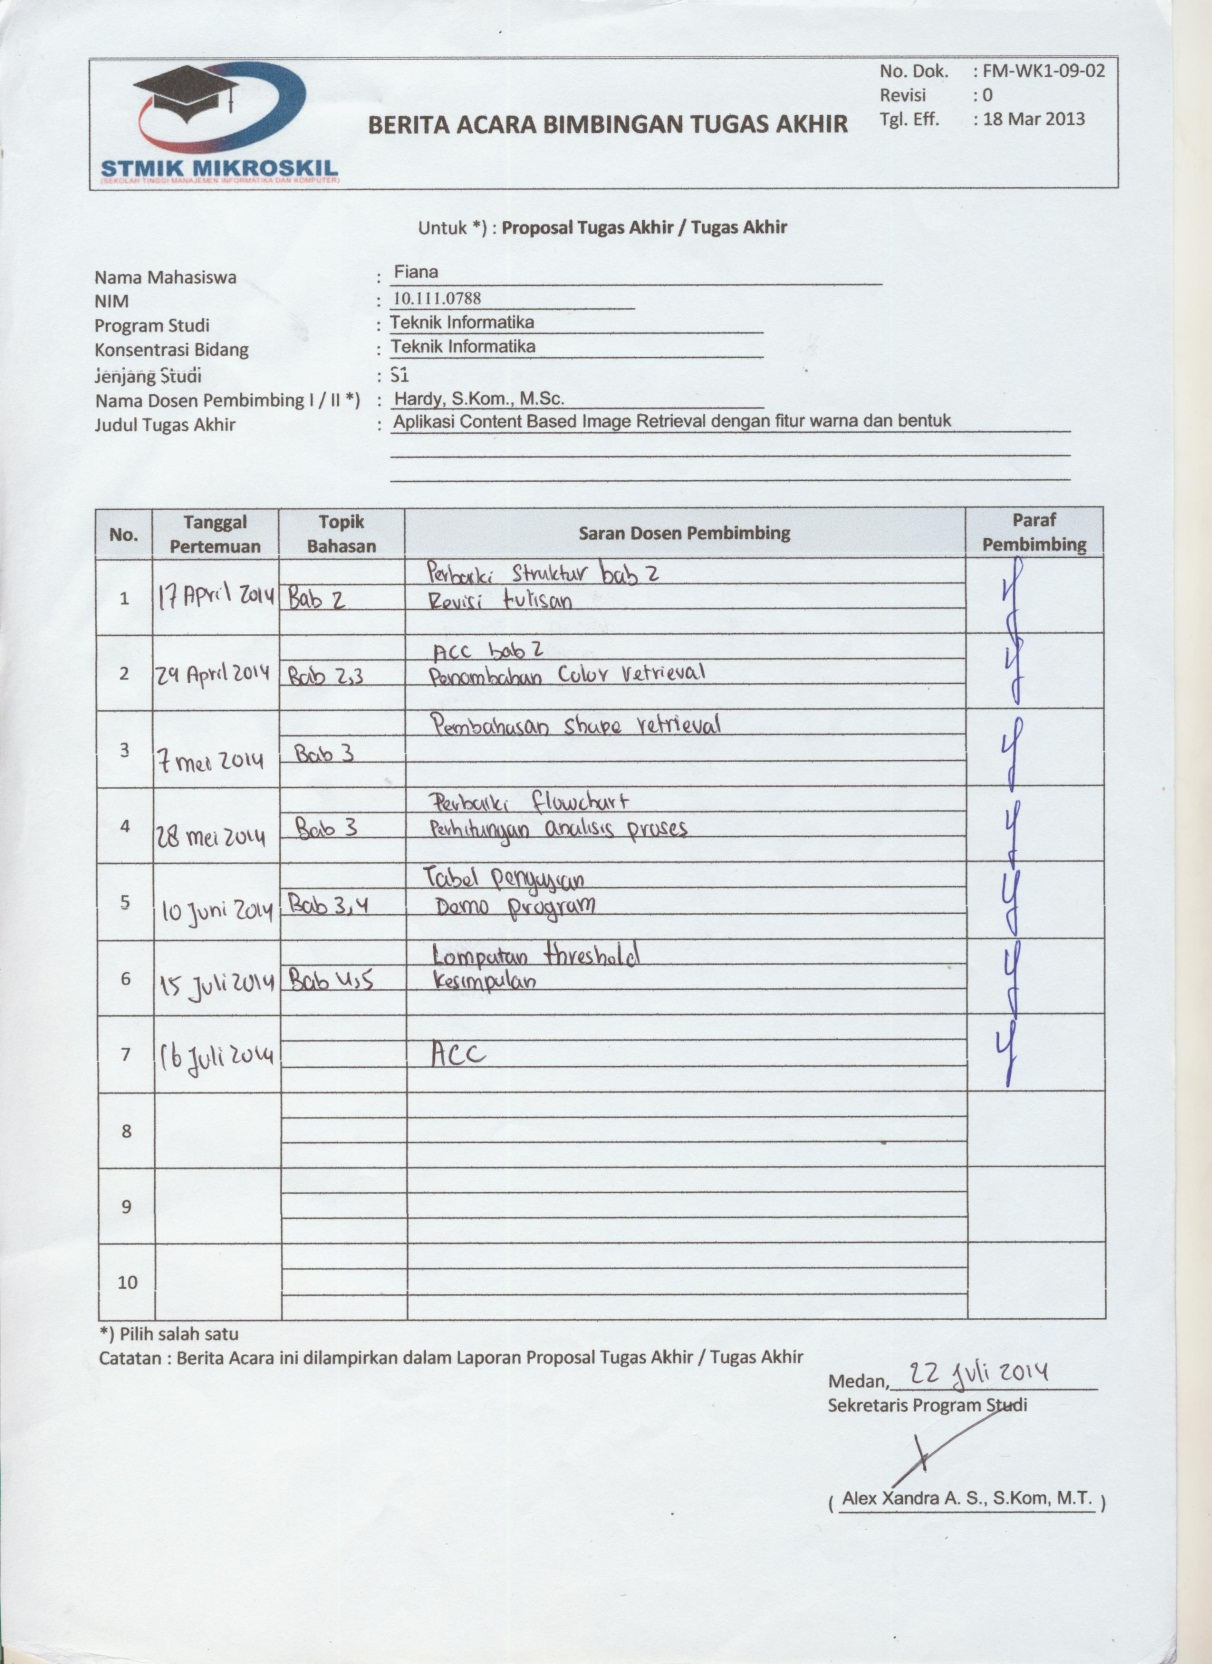 STMIK MIKROSKIL
(SEKOLAH TINGGI MANAJEMEN INFORMATIKA DAN KOMPUTER)
BERITA ACARA BIMBINGAN TUGAS AKHIR
No. Dok. : FM-WK1-09-02
Revisi : 0
Tgl. Eff. : 18 Mar 2013
Untuk *) : Proposal Tugas Akhir / Tugas Akhir
Nama Mahasiswa : Fiana
NIM : 10.111.0788
Program Studi : Teknik Informatika
Konsentrasi Bidang : Teknik Informatika
Jenjang Studi : S1
Nama Dosen Pembimbing I / II *) : Hardy, S.Kom., M.Sc.
Judul Tugas Akhir : Aplikasi Content Based Image Retrieval dengan fitur warna dan bentuk
No. Tanggal Pertemuan Topik Bahasan Saran Dosen Pembimbing Paraf Pembimbing
Perbaiki Struktur bab 2
1 17 April 2014 Bab 2 Revisi tulisan
ACC bab 2
2 29 April 2014 Bab 2,3 Penambahan Color retrieval
Pembahasan shape retrieval
3 7 mei 2014 Bab 3
Perbaiki flowchart
4 28 mei 2014 Bab 3 Perhitungan analisis proses
Tabel pengujian
5 10 Juni 2014 Bab 3,4 Demo program
Lompatan threshold
6 15 Juli 2014 Bab 4,5 Kesimpulan
7 16 Juli 2014 ACC
8
9
10
*) Pilih salah satu
Catatan : Berita Acara ini dilampirkan dalam Laporan Proposal Tugas Akhir / Tugas Akhir
Medan, 22 Juli 2014
Sekretaris Program Studi
( Alex Xandra A. S., S.Kom, M.T. )